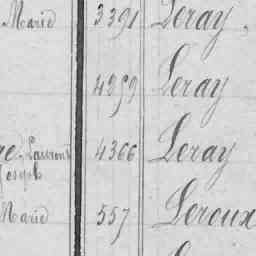 Marie 3391 Leray
4259 Leray
Laurent 4366 Leray
Joseph
Marie 557 Leroux